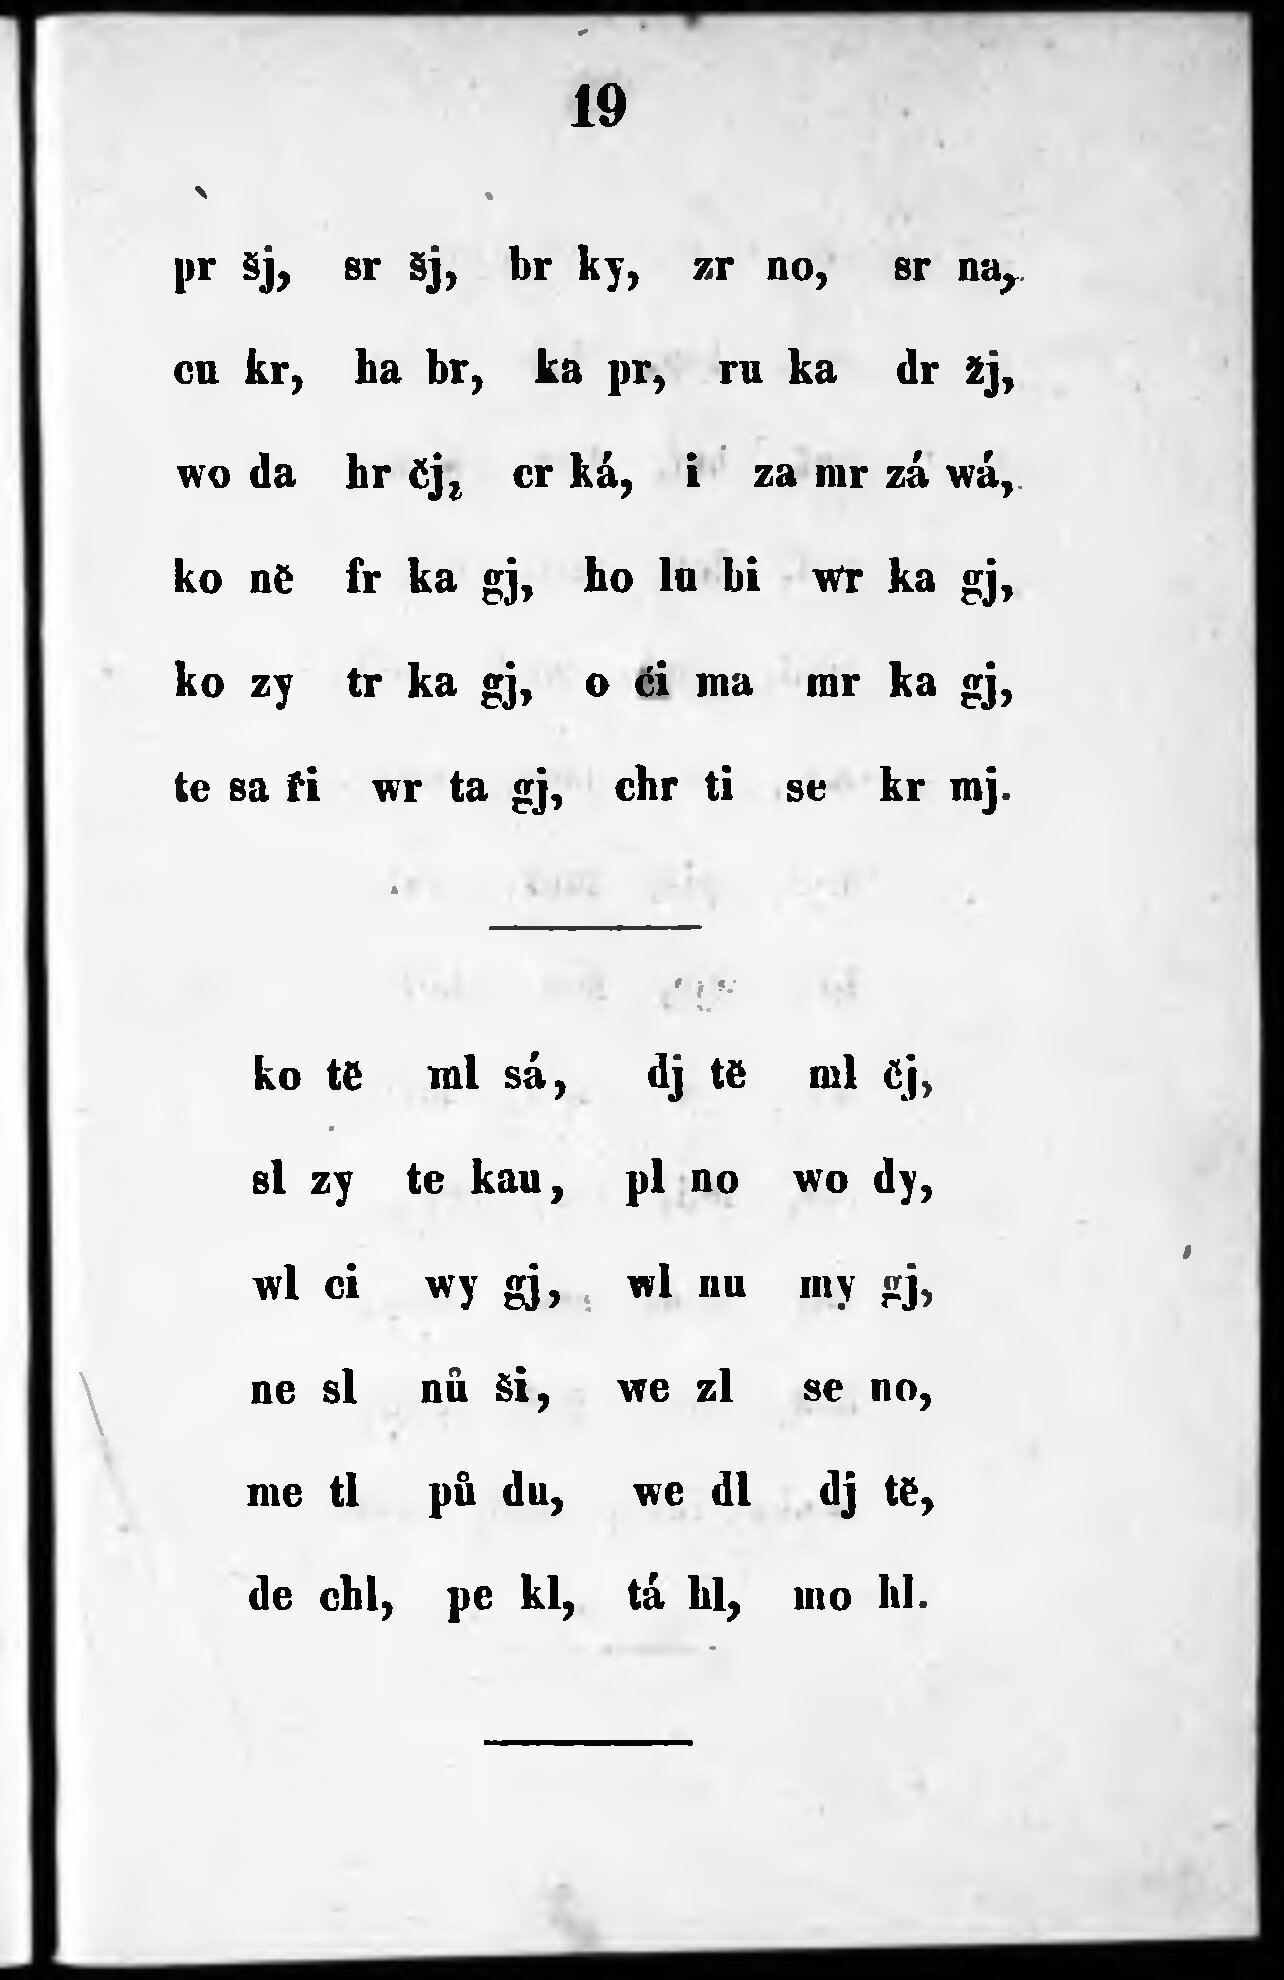 19
pr šj, sr šj, br ky, zr no, sr na,
cu kr, ha br, ka pr, ru ka dr žj,
wo da hr čj, cr ká, i za mr zá wá,
ko ně fr ka gj, ho lu bi wr ka gj,
ko zy tr ka gj, o či ma mr ka gj,
te sa ři wr ta gj, chr ti se kr mj.
ko tě ml sá, dj tě ml čj,
sl zy te kau, pl no wo dy,
wl ci wy gj, wl nu my gj,
ne sl nů ši, we zl se no,
me tl pů du, we dl dj tě,
de chl, pe kl, tá hl, mo hl.